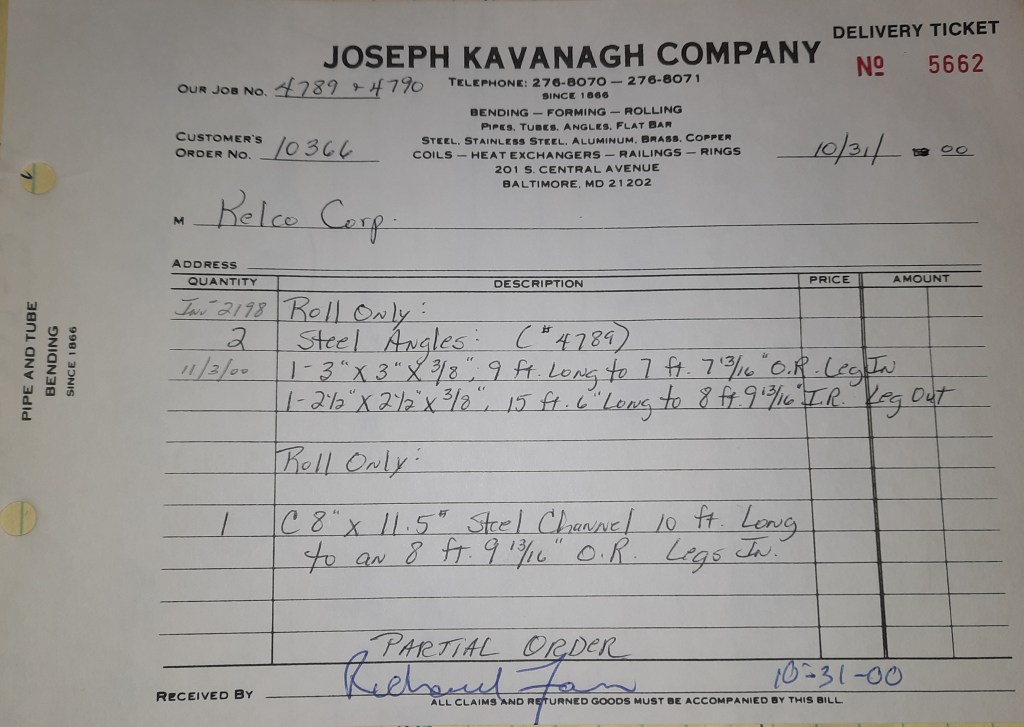 DELIVERY TICKET
JOSEPH KAVANAGH COMPANY
Nº 5662
OUR JOB NO. 4789 & 4790
TELEPHONE: 276-8070 — 276-8071
SINCE 1866
BENDING — FORMING — ROLLING
PIPES, TUBES, ANGLES, FLAT BAR
CUSTOMER'S
ORDER NO. 10366
STEEL, STAINLESS STEEL, ALUMINUM, BRASS, COPPER
COILS — HEAT EXCHANGERS — RAILINGS — RINGS
10/31/ 00
201 S. CENTRAL AVENUE
BALTIMORE, MD 21202
M Kelco Corp.
ADDRESS
QUANTITY DESCRIPTION PRICE AMOUNT
Inv-2198 Roll Only:
2 Steel Angles: (#4789)
11/3/00 1-3" X 3" X 3/8", 9 ft. Long to 7 ft. 7 13/16" O.R. Leg In
1-2 1/2" X 2 1/2" X 3/8", 15 ft. 6" Long to 8 ft. 9 13/16" I.R. Leg Out
Roll Only:
1 C 8" X 11.5# Steel Channel 10 ft. Long
to an 8 ft. 9 13/16" O.R. Legs In.
PARTIAL ORDER
RECEIVED BY Richard 10-31-00
ALL CLAIMS AND RETURNED GOODS MUST BE ACCOMPANIED BY THIS BILL
PIPE AND TUBE
BENDING
SINCE 1866